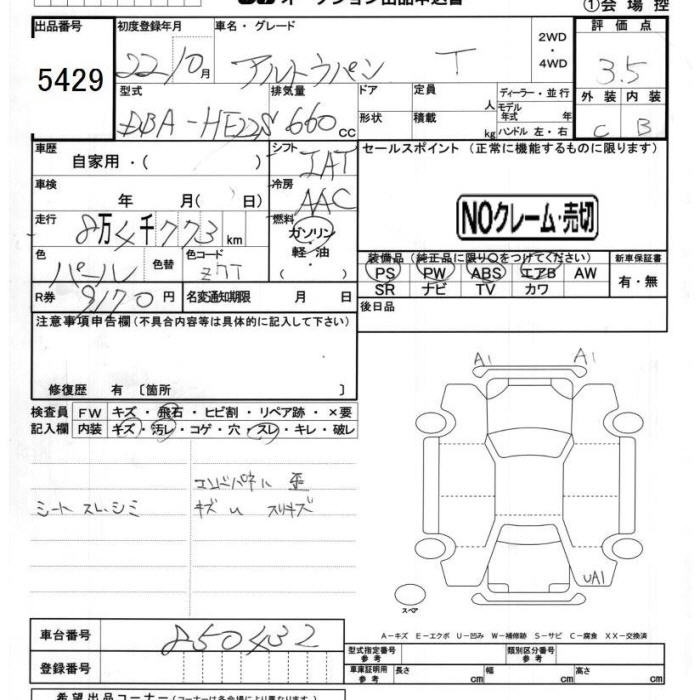 オークション出品申込書
①会場控
出品番号 初度登録年月 車名・グレード 2WD・4WD 評価点
5429 22/10月 アルトラパン T 3.5
型式 排気量 ドア 定員 人 ディーラー・並行 外装 内装
モデル年式 年
DBA-HE22S 660cc 形状 積載 kg ハンドル 左・右 C B
車歴 自家用・( ) シフト IAT セールスポイント (正常に機能するものに限ります)
車検 年 月( 日) 冷房 AAC
NOクレーム・売切
走行 8万4千773km 燃料 ガソリン・軽油・( )
色 パール 色替 色コード Z7T
装備品 (純正品に限り○をつけてください) 新車保証書
PS PW ABS エアB AW 有・無
SR ナビ TV カワ
R券 9170円 名変通知期限 月 日
後日品
注意事項申告欄(不具合内容等は具体的に記入して下さい)
修復歴 有〔箇所 〕
検査員記入欄 FW キズ・飛石・ヒビ割・リペア跡・×要
内装 キズ・汚レ・コゲ・穴・スレ・キレ・破レ
A1 A1
エンドパネル 歪
シート スレ・シミ キズ U スリキズ
UA1
スペア
A-キズ E-エクボ U-凹み W-補修跡 S-サビ C-腐食 XX-交換済
車台番号 850432
型式指定番号 参考 類別区分番号 参考
登録番号 車庫証明用 参考 長さ cm 幅 cm 高さ cm
希望出品コーナー(コーナーは各会場により異なります。)